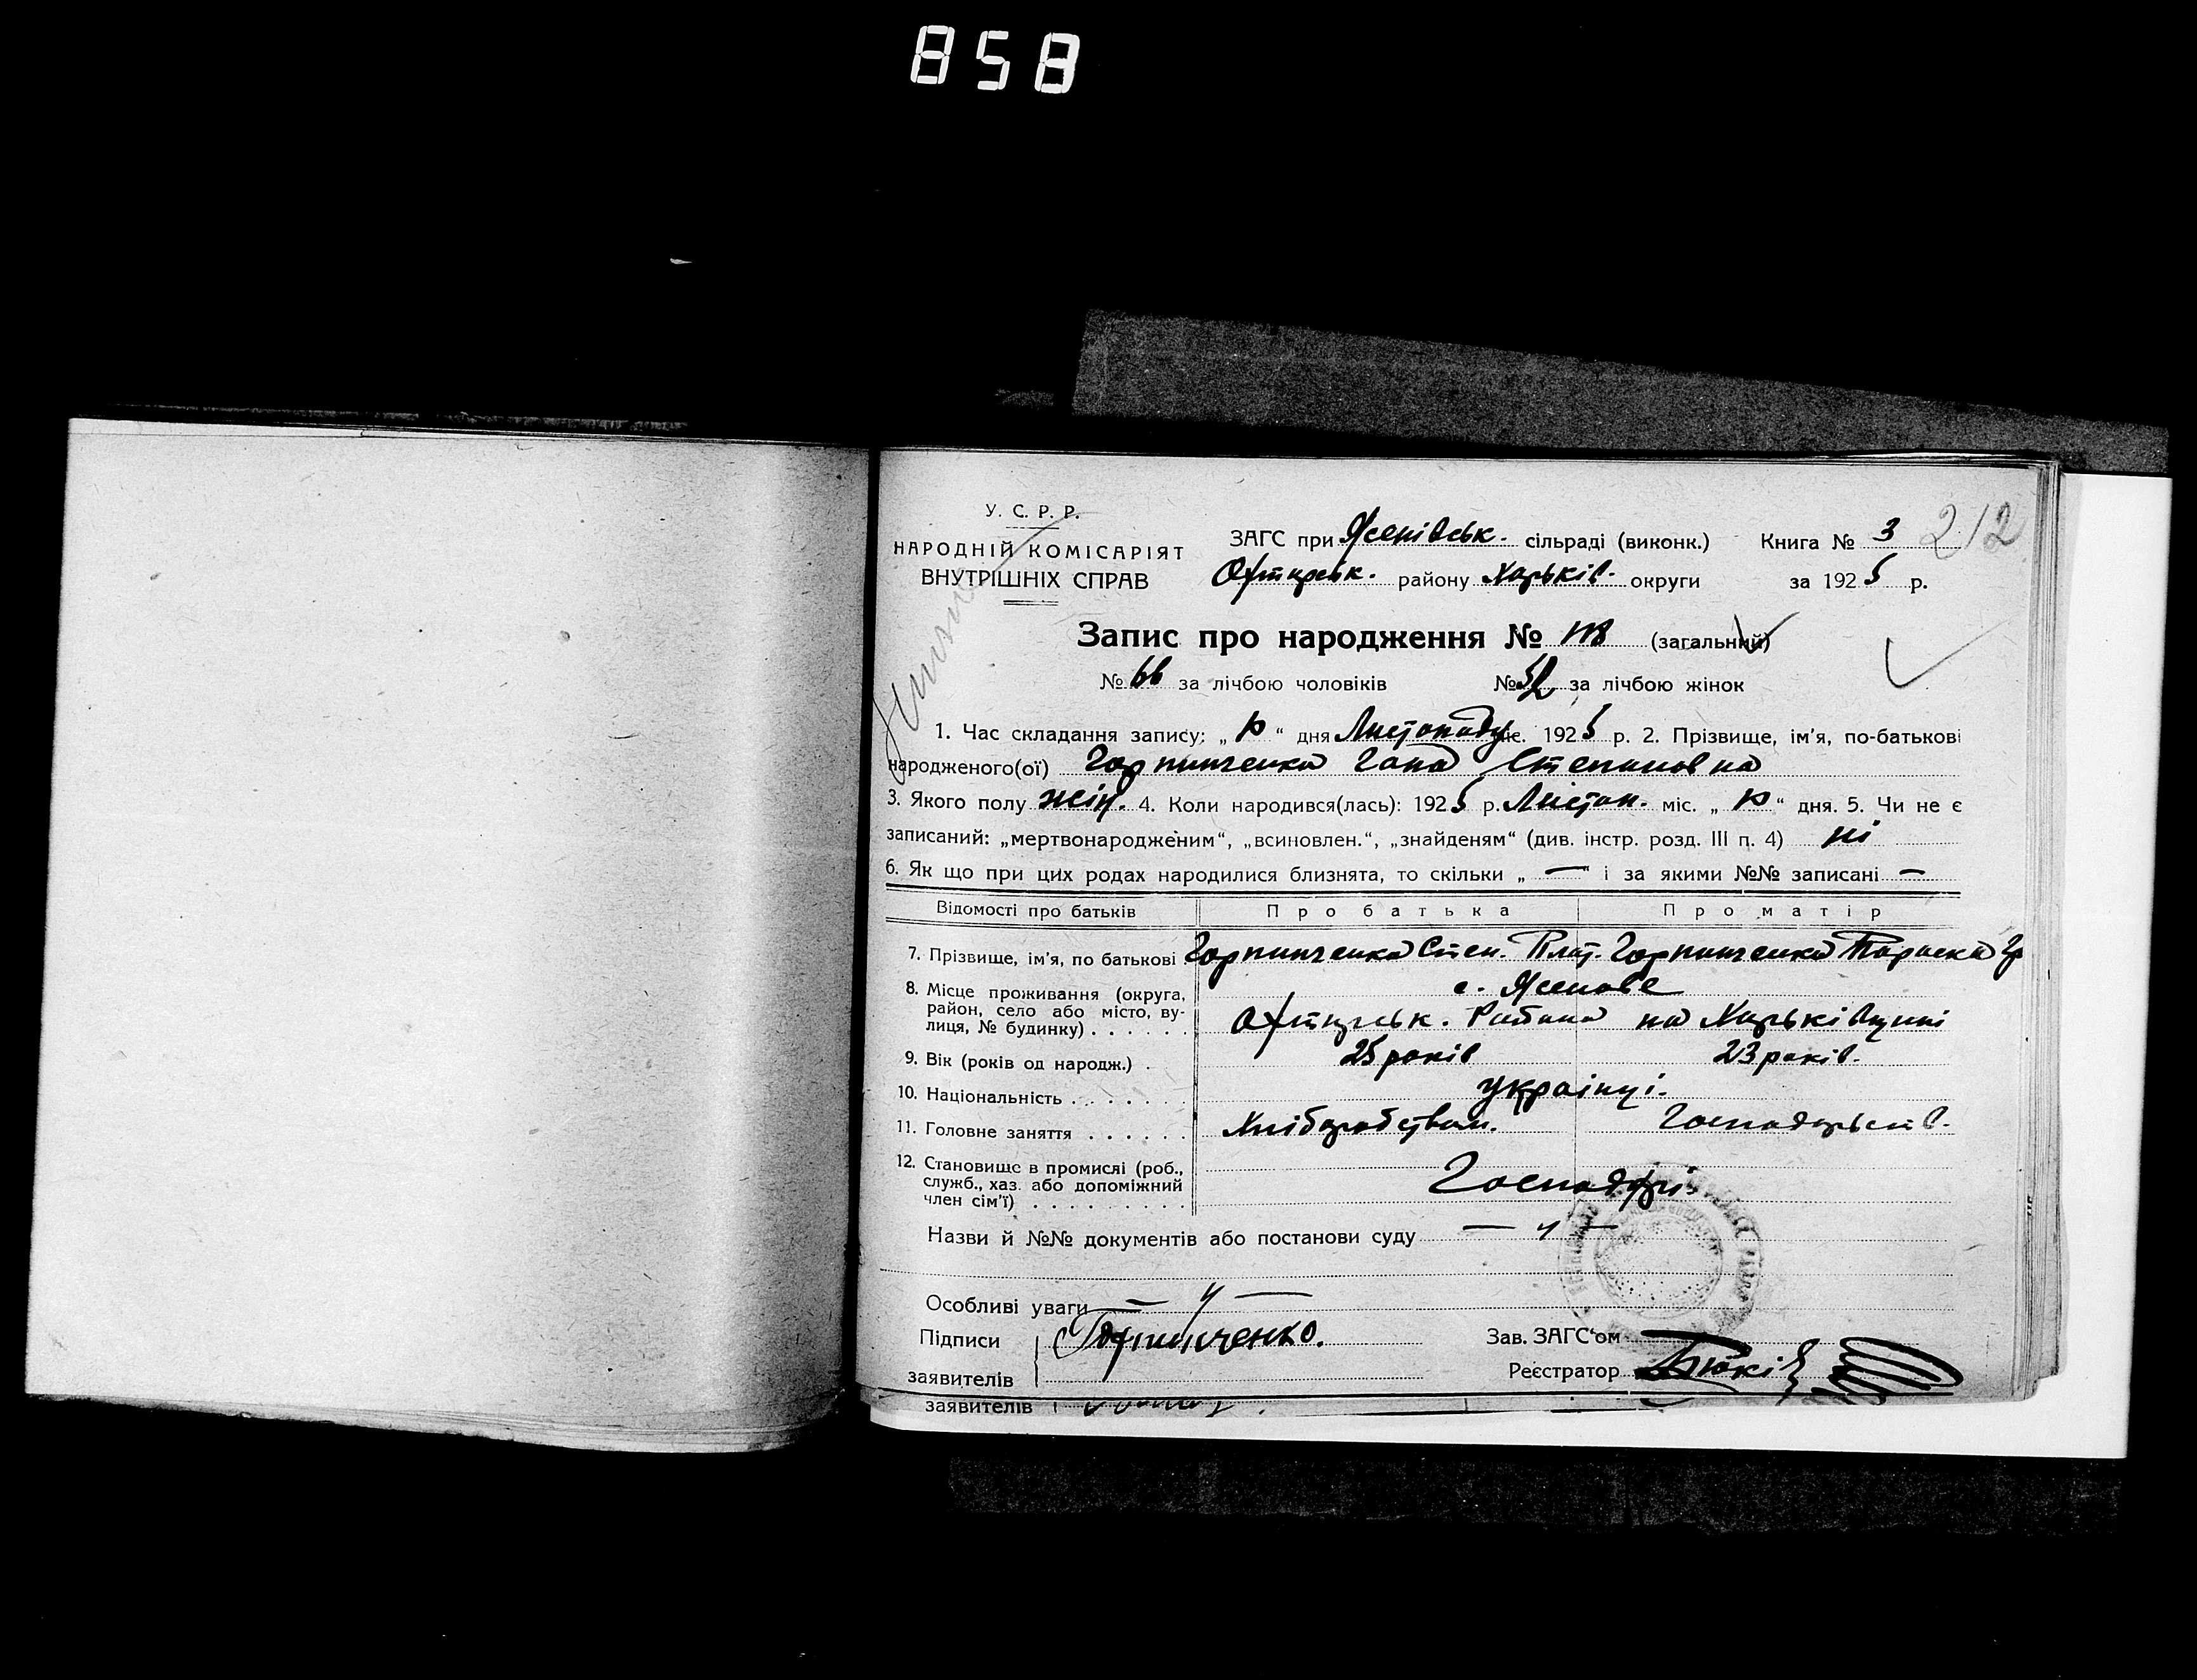 858
У. С. Р. Р.
НАРОДНІЙ КОМІСАРІЯТ
ВНУТРІШНІХ СПРАВ
ЗАГС при Ясенівськ. сільраді (виконк.) Книга № 3 212
Охтирськ. району Харьків. округи за 1925 р.
Запис про народження № 118 (загальний)
№ 66 за лічбою чоловіків № 52 за лічбою жінок
1. Час складання запису: „10“ дня Листопаду міс. 1925 р. 2. Прізвище, ім'я, по-батькові
народженого(ої) Горпинченко Гана Степановна
3. Якого полу жін. 4. Коли народився(лась): 1925 р. Листоп. міс. „10“ дня. 5. Чи не є
записаний: „мертвонародженим“, „всиновлен.“, „знайденям“ (див. інстр. розд. III п. 4) ні
6. Як що при цих родах народилися близнята, то скільки „ — “ і за якими №№ записані —
Відомості про батьків Про батька Про матір
7. Прізвище, ім'я, по батькові Горпинченко Степ. Плат. Горпинченко Параска Гр
8. Місце проживання (округа, район, село або місто, вулиця, № будинку) . . . . . . с. Ясенове
Охтирськ. Района на Харьківщині
9. Вік (років од народж.) . 25 років 23 років.
10. Національність . . . . . . . українці.
11. Головне заняття . . . . . . Хліборобством. Господарств.
12. Становище в промислі (роб., служб., хаз. або допоміжний член сім'ї) . . . . . . . . . Господарі.
Назви й №№ документів або постанови суду — „ —
Особливі уваги — „ —
Підписи Горпинченко. Зав. ЗАГС'ом
заявителів Реєстратор
заявителів